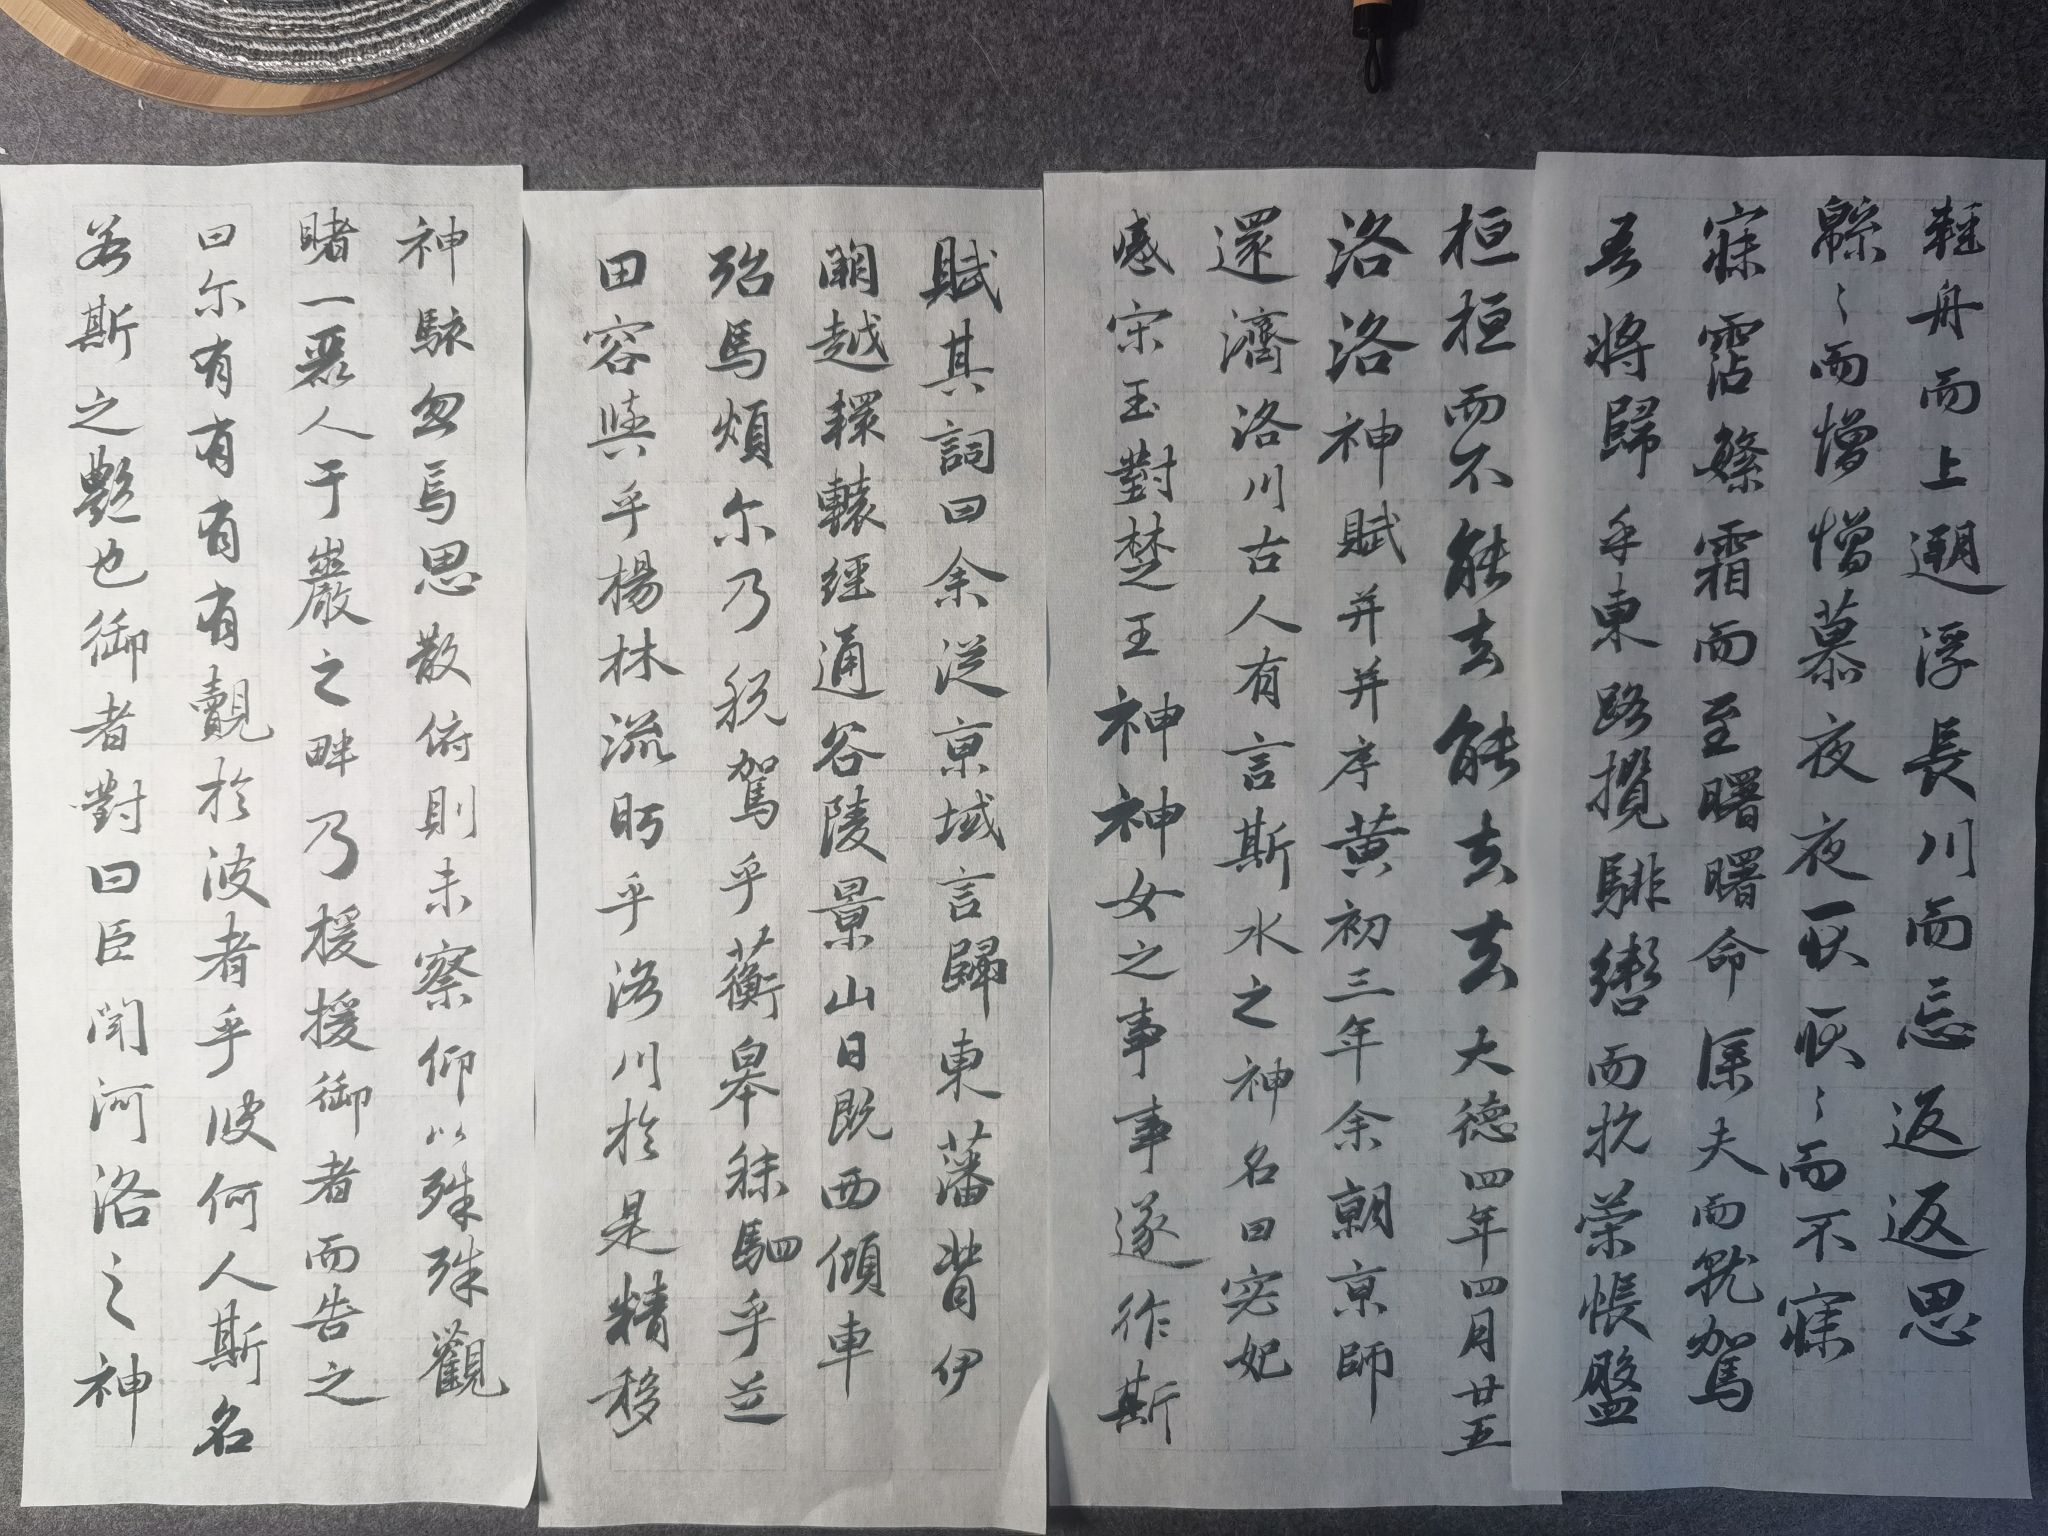 輕舟而上遡浮長川而忘返返思
緜〻而增憎慕夜夜耿耿〻而不寐
寐霑繁霜而至曙曙命僕夫而就駕
吾將歸乎東路攬騑轡而抗榮悵盤
桓桓而不能去能去去大德四年四月廿五
洛洛神賦并并序黄初三年余朝京師
還濟洛川古人有言斯水之神名曰宓妃
感宋玉對楚王神神女之事事遂作斯
賦其詞曰余從京域言歸東藩背伊
闕越轘轅經通谷陵景山日既西傾車
殆馬煩尔乃税駕乎蘅皋秣駟乎芝
田容與乎楊林流眄乎洛川於是精移
神駭忽焉思散俯則未察仰以殊殊觀
睹一麗人于巖之畔乃援援御者而告之
曰尔有有有有覿於彼者乎彼何人斯名
若斯之艷也御者對曰臣聞河洛之神